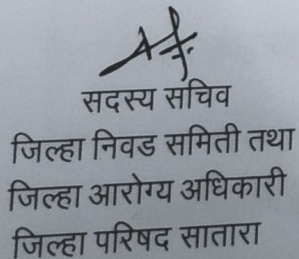 सदस्य सचिव
जिल्हा निवड समिती तथा
जिल्हा आरोग्य अधिकारी
जिल्हा परिषद सातारा